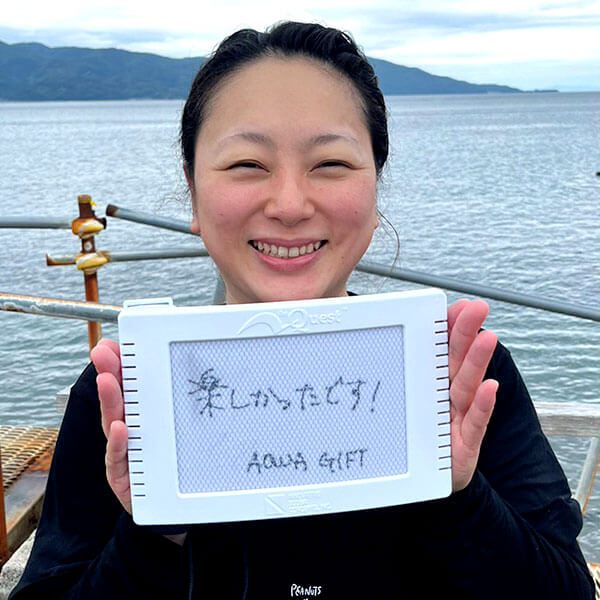 Quest
楽しかったです!
AQUA GIFT
PEANUTS